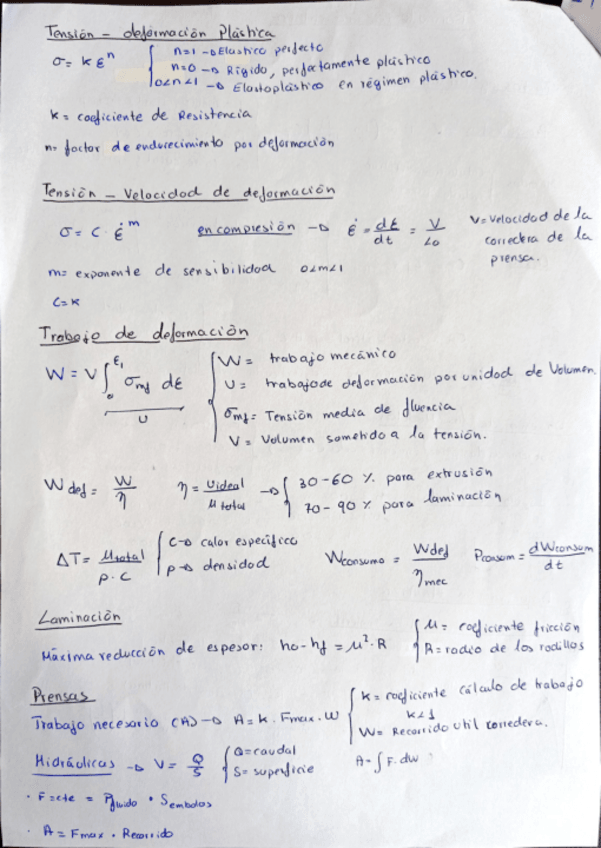 Tensión - deformación Plástica
σ = k ε^n { n=1 → Elastico perfecto
n=0 → Rígido, perfectamente plástico
0<n<1 → Elastoplástico en régimen plástico.
k = coeficiente de Resistencia
n= factor de endurecimiento por deformación
Tensión - Velocidad de deformación
σ = C · ε̇^m en compresión → ε̇ = dε/dt = V/Lo V= Velocidad de la
corredera de la
prensa.
m= exponente de sensibilidad 0<m<1
C=k
Trabajo de deformación
W = V ∫₀^ε₁ σmf dε { W = trabajo mecánico
U U = trabajo de deformación por unidad de Volumen.
σmf = Tensión media de fluencia
V = Volumen sometido a la tensión.
Wdef = W/η η = Uideal/μtotal → { 30-60 % para extrusión
70-90 % para laminación
ΔT = μtotal/ρ·C { C → calor específico
ρ → densidad
Wconsumo = Wdef/ηmec Pconsum = dWconsum/dt
Laminación
Máxima reducción de espesor: ho-hf = μ²·R { μ = coeficiente fricción
R= radio de los rodillos
Prensas
Trabajo necesario (A) → A = k · Fmax · W { k = coeficiente cálculo de trabajo
k<1
W= Recorrido útil corredera.
Hidráulicas → V = Q/S { Q = caudal
S= superficie
A = ∫F·dw
· F = cte = Pfluido · Sembolos
· A = Fmax · Recorrido